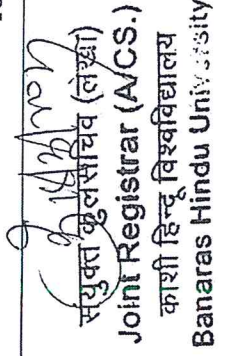 संयुक्त कुलसचिव (लेखा)
Joint Registrar (A/CS.)
काशी हिन्दू विश्वविद्यालय
Banaras Hindu University